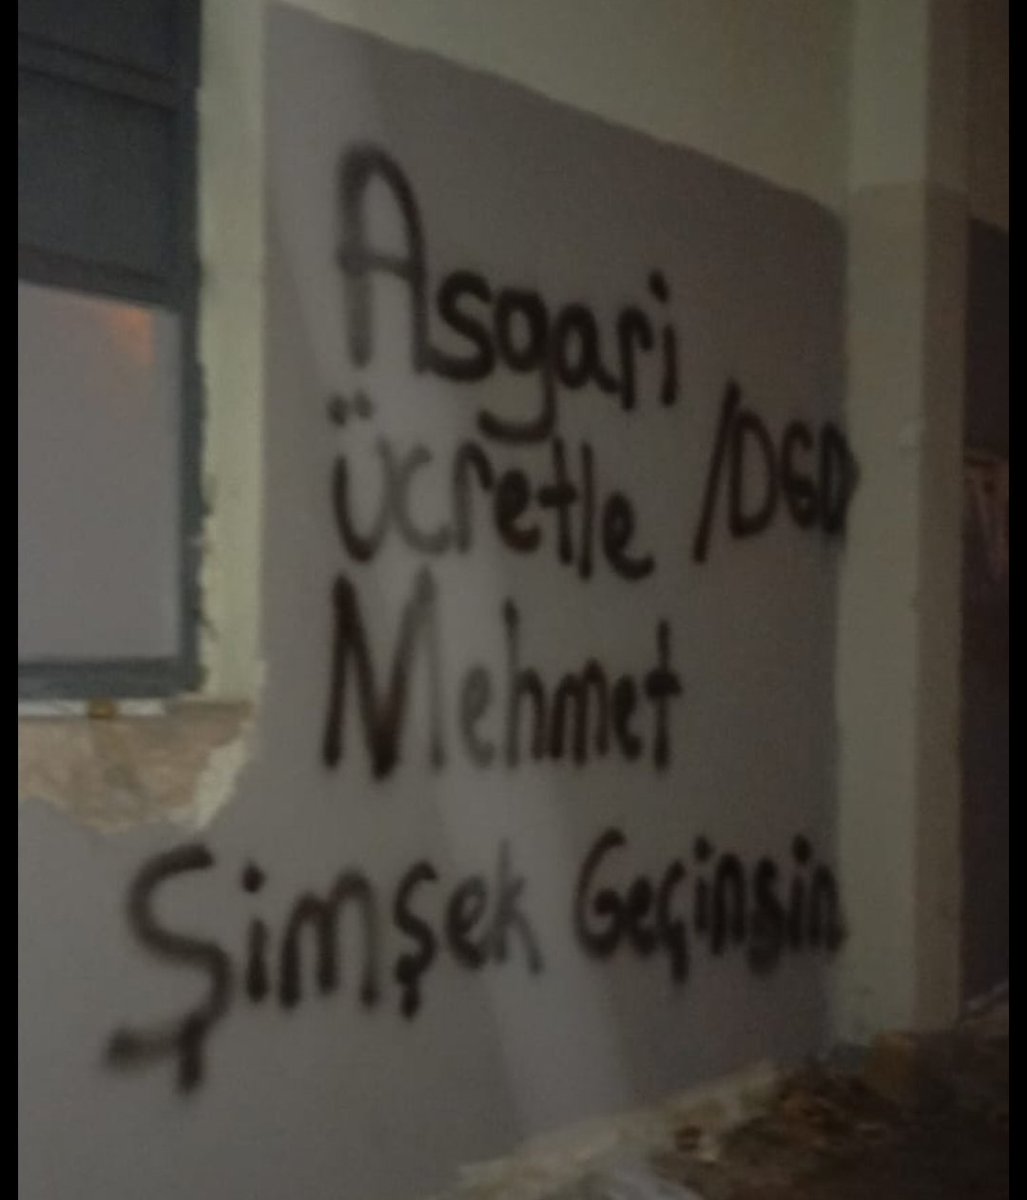 Asgari
ücretle /DGD
Mehmet
Şimşek Geçinsin